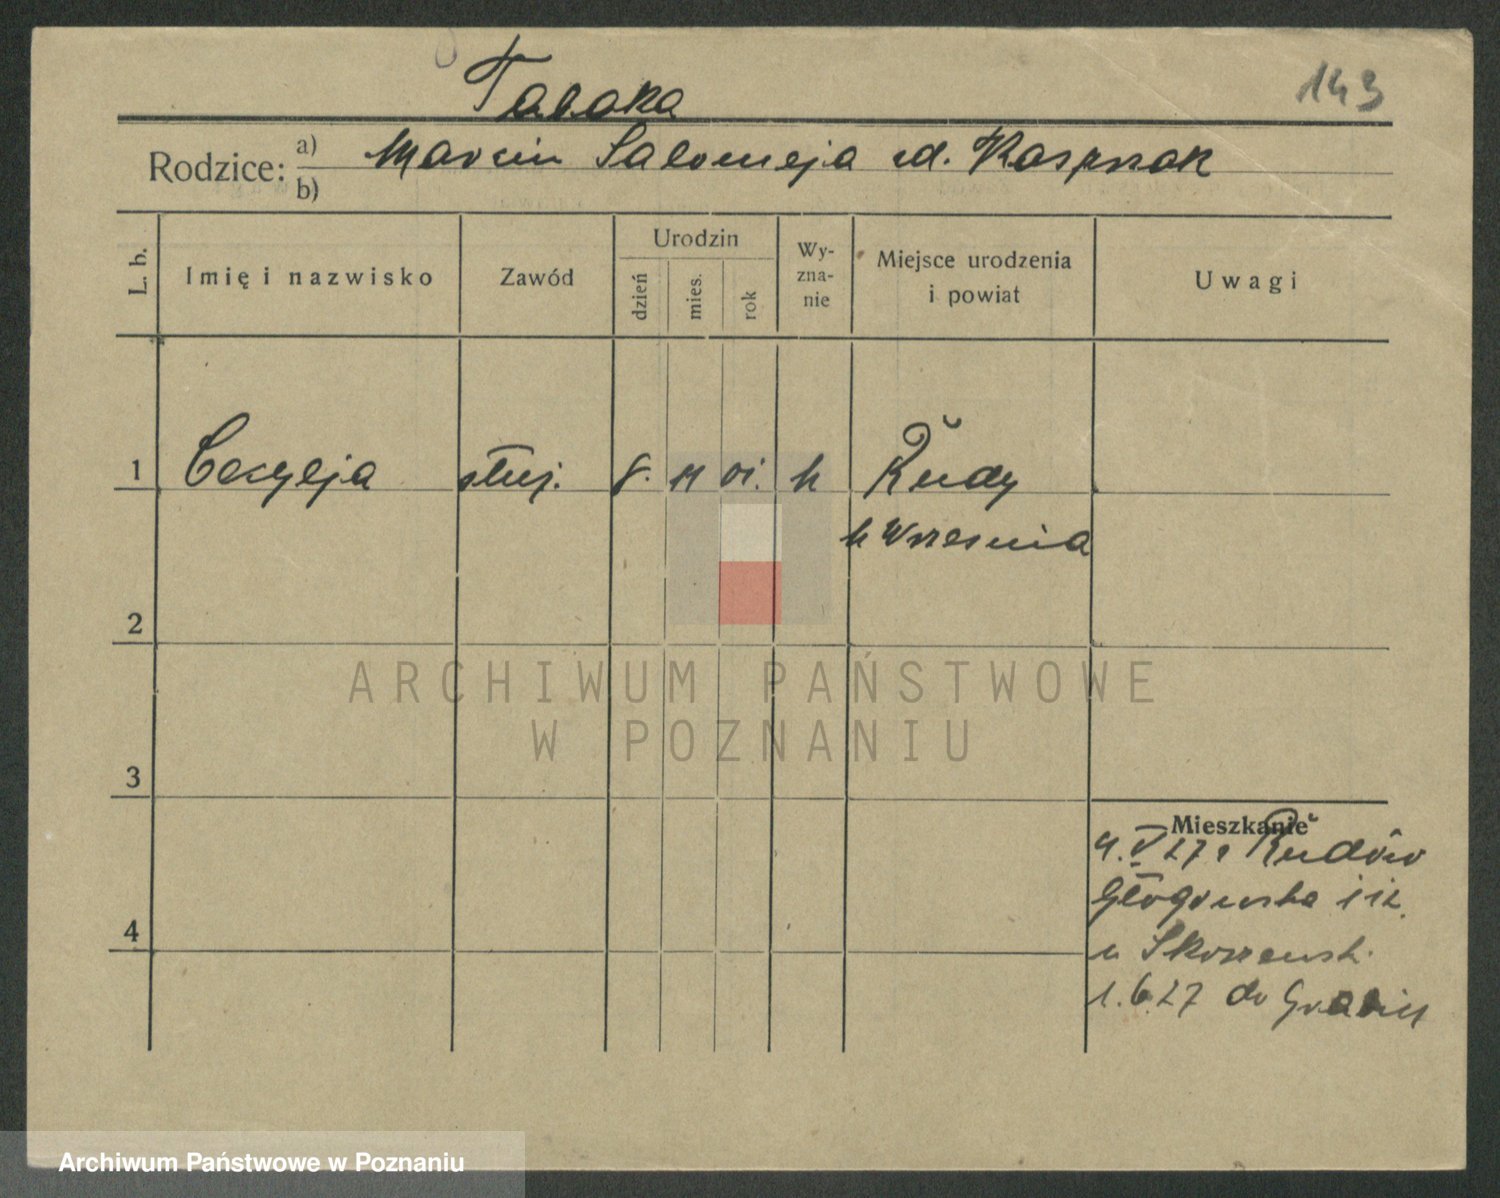 Tabaka
143
Rodzice: a) Marcin Salomeja zd. Kasprzak
b)
L. b.
Imię i nazwisko
Zawód
Urodzin
dzień
mies.
rok
Wy-
zna-
nie
Miejsce urodzenia
i powiat
Uwagi
1 Cecylja służ. 8. 11 01. k Rudy
k Września
2
3
4
Mieszkanie
4. V 27 z Rudów
Głogowska 112
u Skorzewsk.
1. 6 27 do
ARCHIWUM PAŃSTWOWE
W POZNANIU
Archiwum Państwowe w Poznaniu